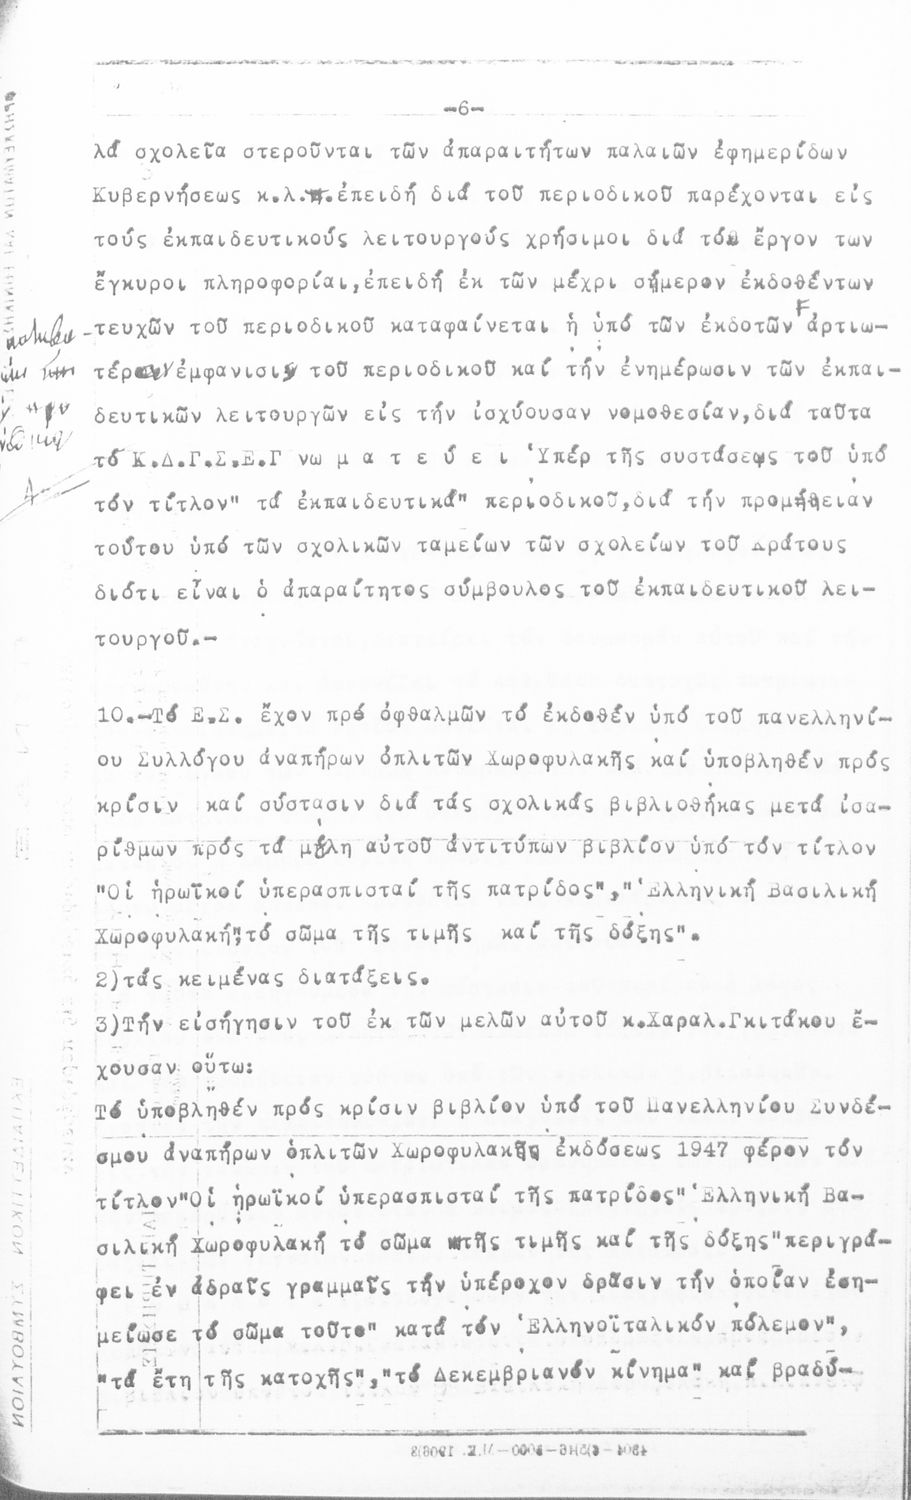 -6-
λά σχολεῖα στεροῦνται τῶν ἀπαραιτήτων παλαιῶν ἐφημερίδων
Κυβερνήσεως κ.λ.π.ἐπειδή διά τοῦ περιοδικοῦ παρέχονται εἰς
τούς ἐκπαιδευτικούς λειτουργούς χρήσιμοι διά τό ἔργον των
ἔγκυροι πληροφορίαι,ἐπειδή ἐκ τῶν μέχρι σήμερον ἐκδοθέντων
τευχῶν τοῦ περιοδικοῦ καταφαίνεται ἡ ὑπό τῶν ἐκδοτῶν ἀρτιω-
τέραν ἐμφανισις τοῦ περιοδικοῦ καί τήν ἐνημέρωσιν τῶν ἐκπαι-
δευτικῶν λειτουργῶν εἰς τήν ἰσχύουσαν νομοθεσίαν,διά ταῦτα
τό Κ.Δ.Γ.Σ.Ε.Γ νω μ α τ ε ύ ε ι Ὑπέρ τῆς συστάσεως τοῦ ὑπό
τόν τίτλον" τά ἐκπαιδευτικά" περιοδικοῦ,διά τήν προμήθειαν
τούτου ὑπό τῶν σχολικῶν ταμείων τῶν σχολείων τοῦ Κράτους
διότι εἶναι ὁ ἀπαραίτητος σύμβουλος τοῦ ἐκπαιδευτικοῦ λει-
τουργοῦ.-
10.-Τό Ε.Σ. ἔχον πρό ὀφθαλμῶν τό ἐκδοθέν ὑπό τοῦ πανελληνί-
ου Συλλόγου ἀναπήρων ὁπλιτῶν Χωροφυλακῆς καί ὑποβληθέν πρός
κρίσιν καί σύστασιν διά τάς σχολικάς βιβλιοθήκας μετά ἰσα-
ρίθμων πρός τά μέλη αὐτοῦ ἀντιτύπων βιβλίον ὑπό τόν τίτλον
"Οἱ ἡρωϊκοί ὑπερασπισταί τῆς πατρίδος","Ἑλληνική Βασιλική
Χωροφυλακή",τό σῶμα τῆς τιμῆς καί τῆς δόξης".
2)τάς κειμένας διατάξεις.
3)Τήν εἰσήγησιν τοῦ ἐκ τῶν μελῶν αὐτοῦ κ.Χαραλ.Γκιτάκου ἔ-
χουσαν οὕτω:
Τό ὑποβληθέν πρός κρίσιν βιβλίον ὑπό τοῦ Πανελληνίου Συνδέ-
σμου ἀναπήρων ὁπλιτῶν Χωροφυλακῆς ἐκδόσεως 1947 φέρον τόν
τίτλον"Οἱ ἡρωϊκοί ὑπερασπισταί τῆς πατρίδος"Ἑλληνική Βα-
σιλική Χωροφυλακή τό σῶμα τῆς τιμῆς καί τῆς δόξης"περιγρά-
φει ἐν ἁδραῖς γραμμαῖς τήν ὑπέροχον δρᾶσιν τήν ὁποίαν ἐση-
μείωσε τό σῶμα τοῦτο" κατά τόν Ἑλληνοϊταλικόν πόλεμον",
"τά ἔτη τῆς κατοχῆς","τό Δεκεμβριανόν κίνημα" καί βραδύ-